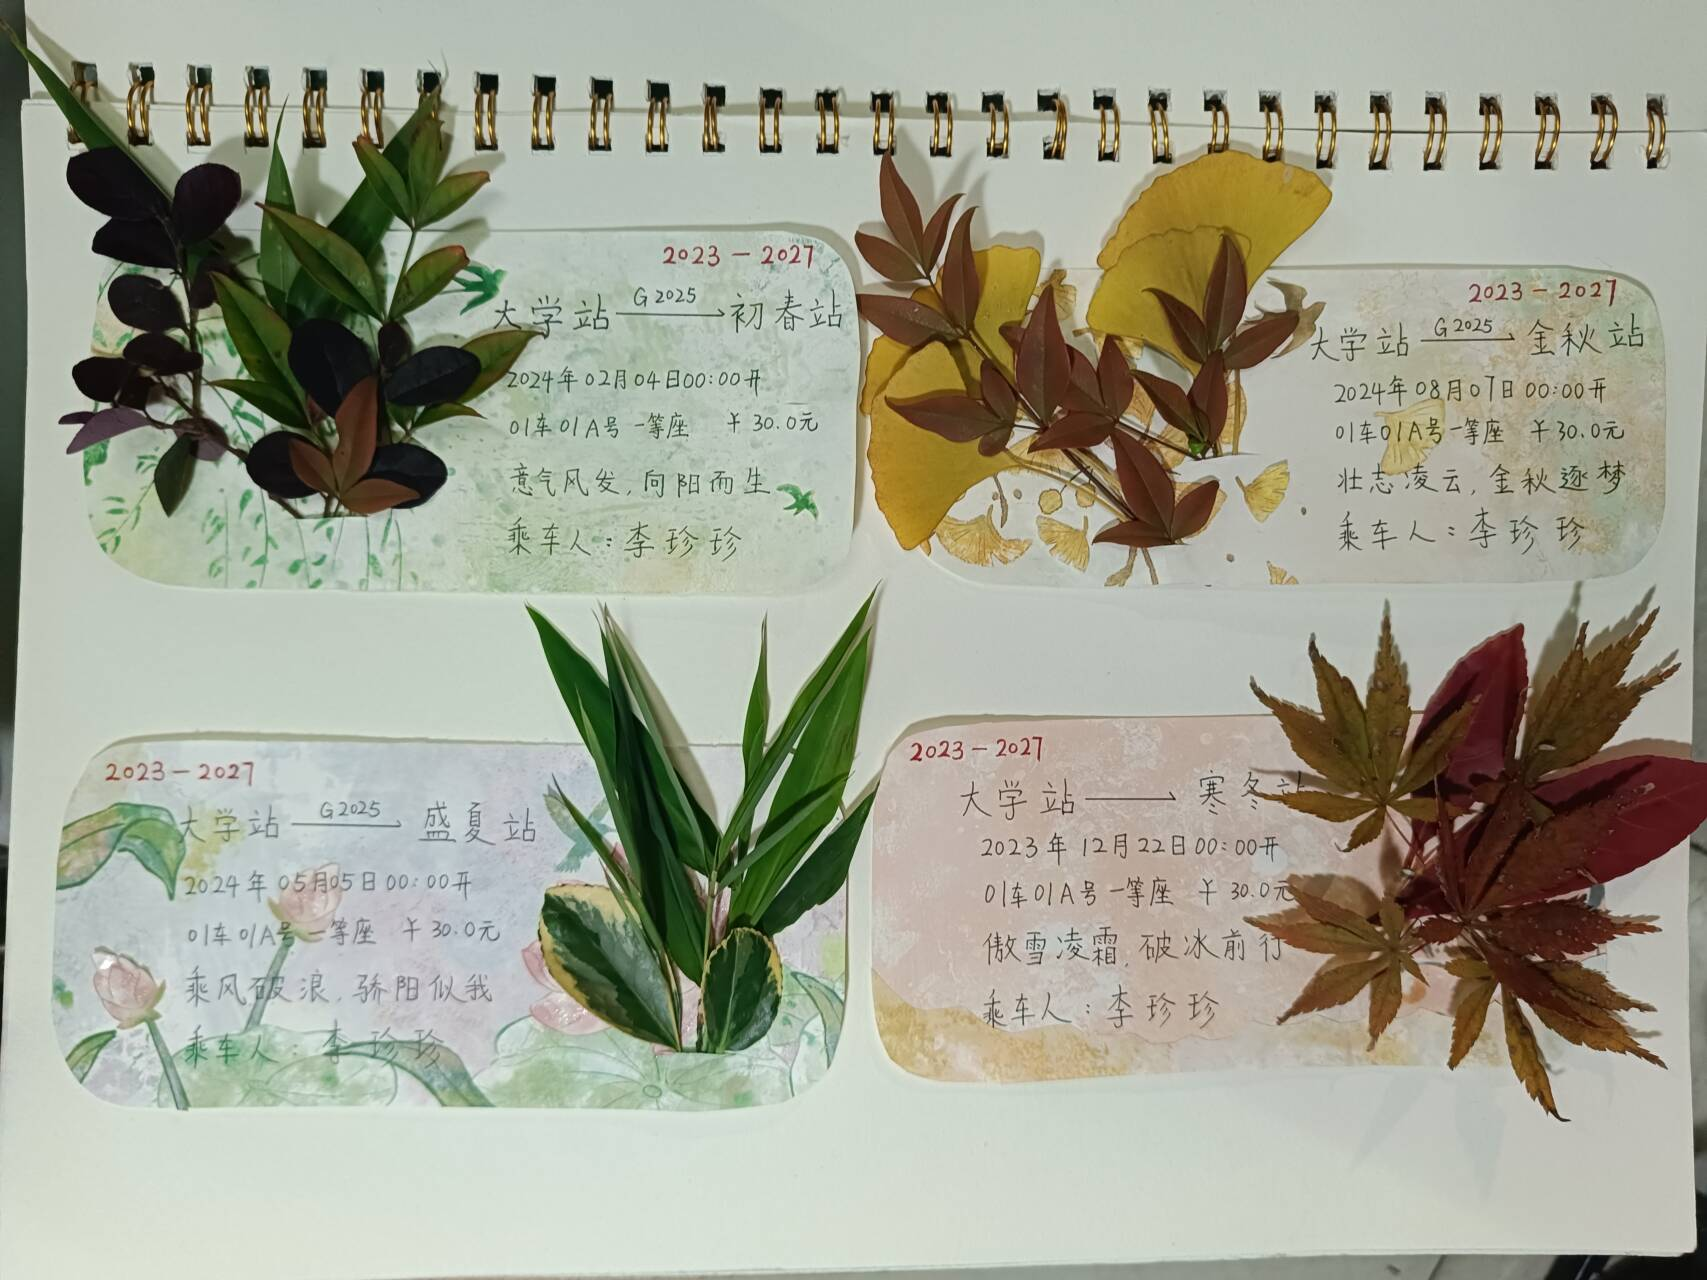 2023－2027
大学站 G2025 初春站
2024年02月04日00:00开
01车01A号一等座 ￥30.0元
意气风发,向阳而生
乘车人:李珍珍
2023－2027
大学站 G2025 金秋站
2024年08月07日00:00开
01车01A号一等座 ￥30.0元
壮志凌云,金秋逐梦
乘车人:李珍珍
2023－2027
大学站 G2025 盛夏站
2024年05月05日00:00开
01车01A号一等座 ￥30.0元
乘风破浪,骄阳似我
乘车人:李珍珍
2023－2027
大学站 寒冬站
2023年12月22日00:00开
01车01A号一等座 ￥30.0元
傲雪凌霜,破冰前行
乘车人:李珍珍